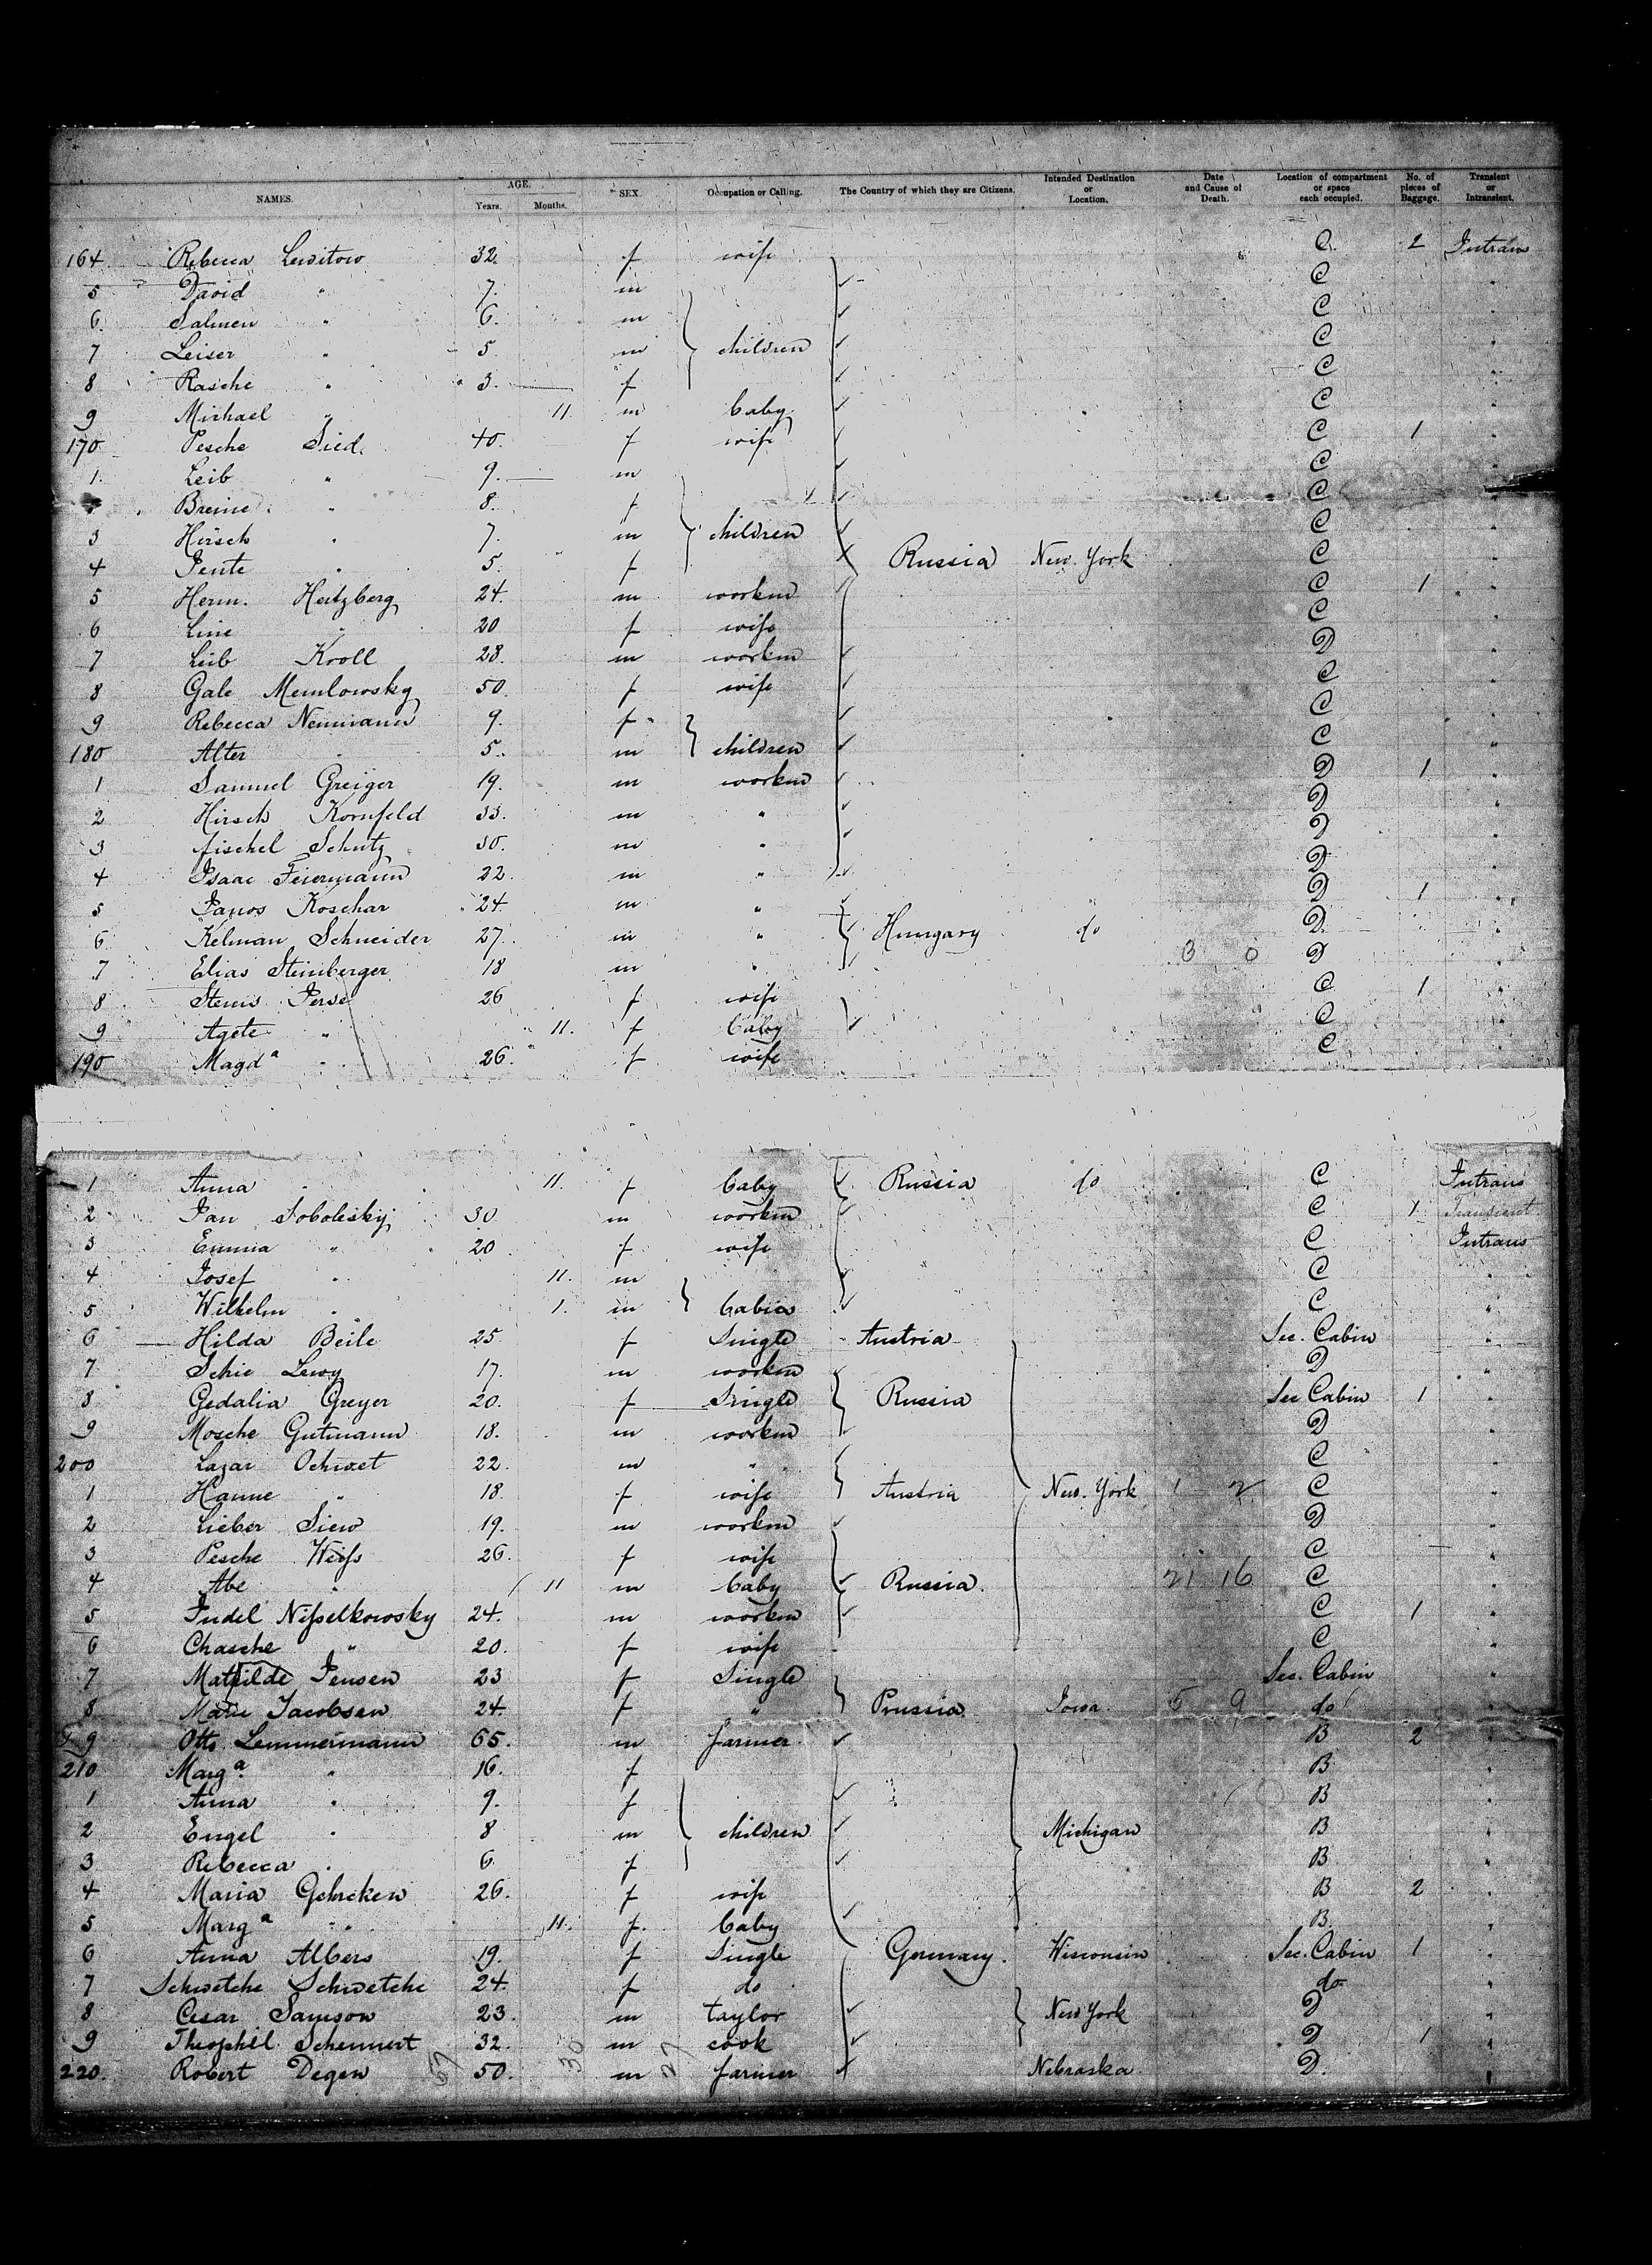 NAMES. AGE. Years. Months. SEX. Occupation or Calling. The Country of which they are Citizens. Intended Destination or Location. Date and Cause of Death. Location of compartment or space each occupied. No. of pieces of Baggage. Transient or Intransient.
164 Rebecca Lewitow 32. f wife C 2 Intrans
5 David " 7. m C "
6. Salmen " 6. m C "
7 Leiser " 5. m children C "
8 Rasche " 3. f C "
9 Michael " 11. m baby C "
170 Pesche Sied. 40. f wife C 1 "
1. Leib " 9. m C "
Breine " 8. f C "
3 Hirsch " 7. m children C "
4 Jente " 5. f Russia New York C "
5 Herm. Hertzberg 24. m workm C 1 "
6 Line " 20 f wife C "
7 Leib Kroll 28. m workm D "
8 Gale Memlowsky 50. f wife C "
9 Rebecca Neumann 9. f C "
180 Alter " 5. m children C "
1 Samuel Greiger 19. m workm D 1 "
2 Hirsch Kornfeld 33. m " D "
3 Fischel Schutz 30. m " D "
4 Isaac Feiermann 22. m " D "
5 Janos Koschar 24. m " D 1 "
6 Kelman Schneider 27. m " Hungary do D "
7 Elias Steinberger 18 m " 3 0 D "
8 Stenis Perse 26 f wife C 1 "
9 Agete " 11. f baby C "
190 Magda " 26. f wife C
1 Anna " 11. f baby Russia do C Intrans
2 Jan Sobolesky 30 m workm C 1 Transient
3 Emma " 20 f wife C Intrans
4 Josef " 11. m C "
5 Wilhelm " 1. m babies C "
6 Hilda Beile 25 f Single Austria Sec. Cabin "
7 Schie Lewy 17. m workm D "
8 Gedalia Greyer 20. f Single Russia Sec Cabin 1 "
9 Mosche Gutmann 18. m workm D "
200 Lazar Ochwet 22. m " C "
1 Hanne " 18. f wife Austria New. York 1 2 C "
2 Lieber Siew 19. m workm D "
3 Pesche Weiss 26. f wife C "
4 Abe " 11 m baby Russia. 21 16 C "
5 Judel Nisselkowsky 24. m workm C 1 "
6 Chasche " 20. f wife C "
7 Mathilde Jensen 23 f Single Sec. Cabin "
8 Marie Jacobsen 24. f " Prussia Iowa 5 9 do "
9 Otto Lemmermann 65. m farmer B 2 "
210 Marga. " 16. f B "
1 Anna " 9. f B "
2 Engel " 8 m children Michigan B "
3 Rebecca " 6 f B "
4 Maria Gehrcken 26. f wife B 2 "
5 Marga " 11. f. baby B "
6 Anna Albers 19. f Single Germany. Wisconsin Sec. Cabin 1 "
7 Schwetche Schwetche 24. f do do "
8 Cesar Samson 23. m taylor New York D "
9 Theophil Schennert 32. m cook D 1 "
220. Robert Degen 50. m farmer Nebraska D. "
67 30 27